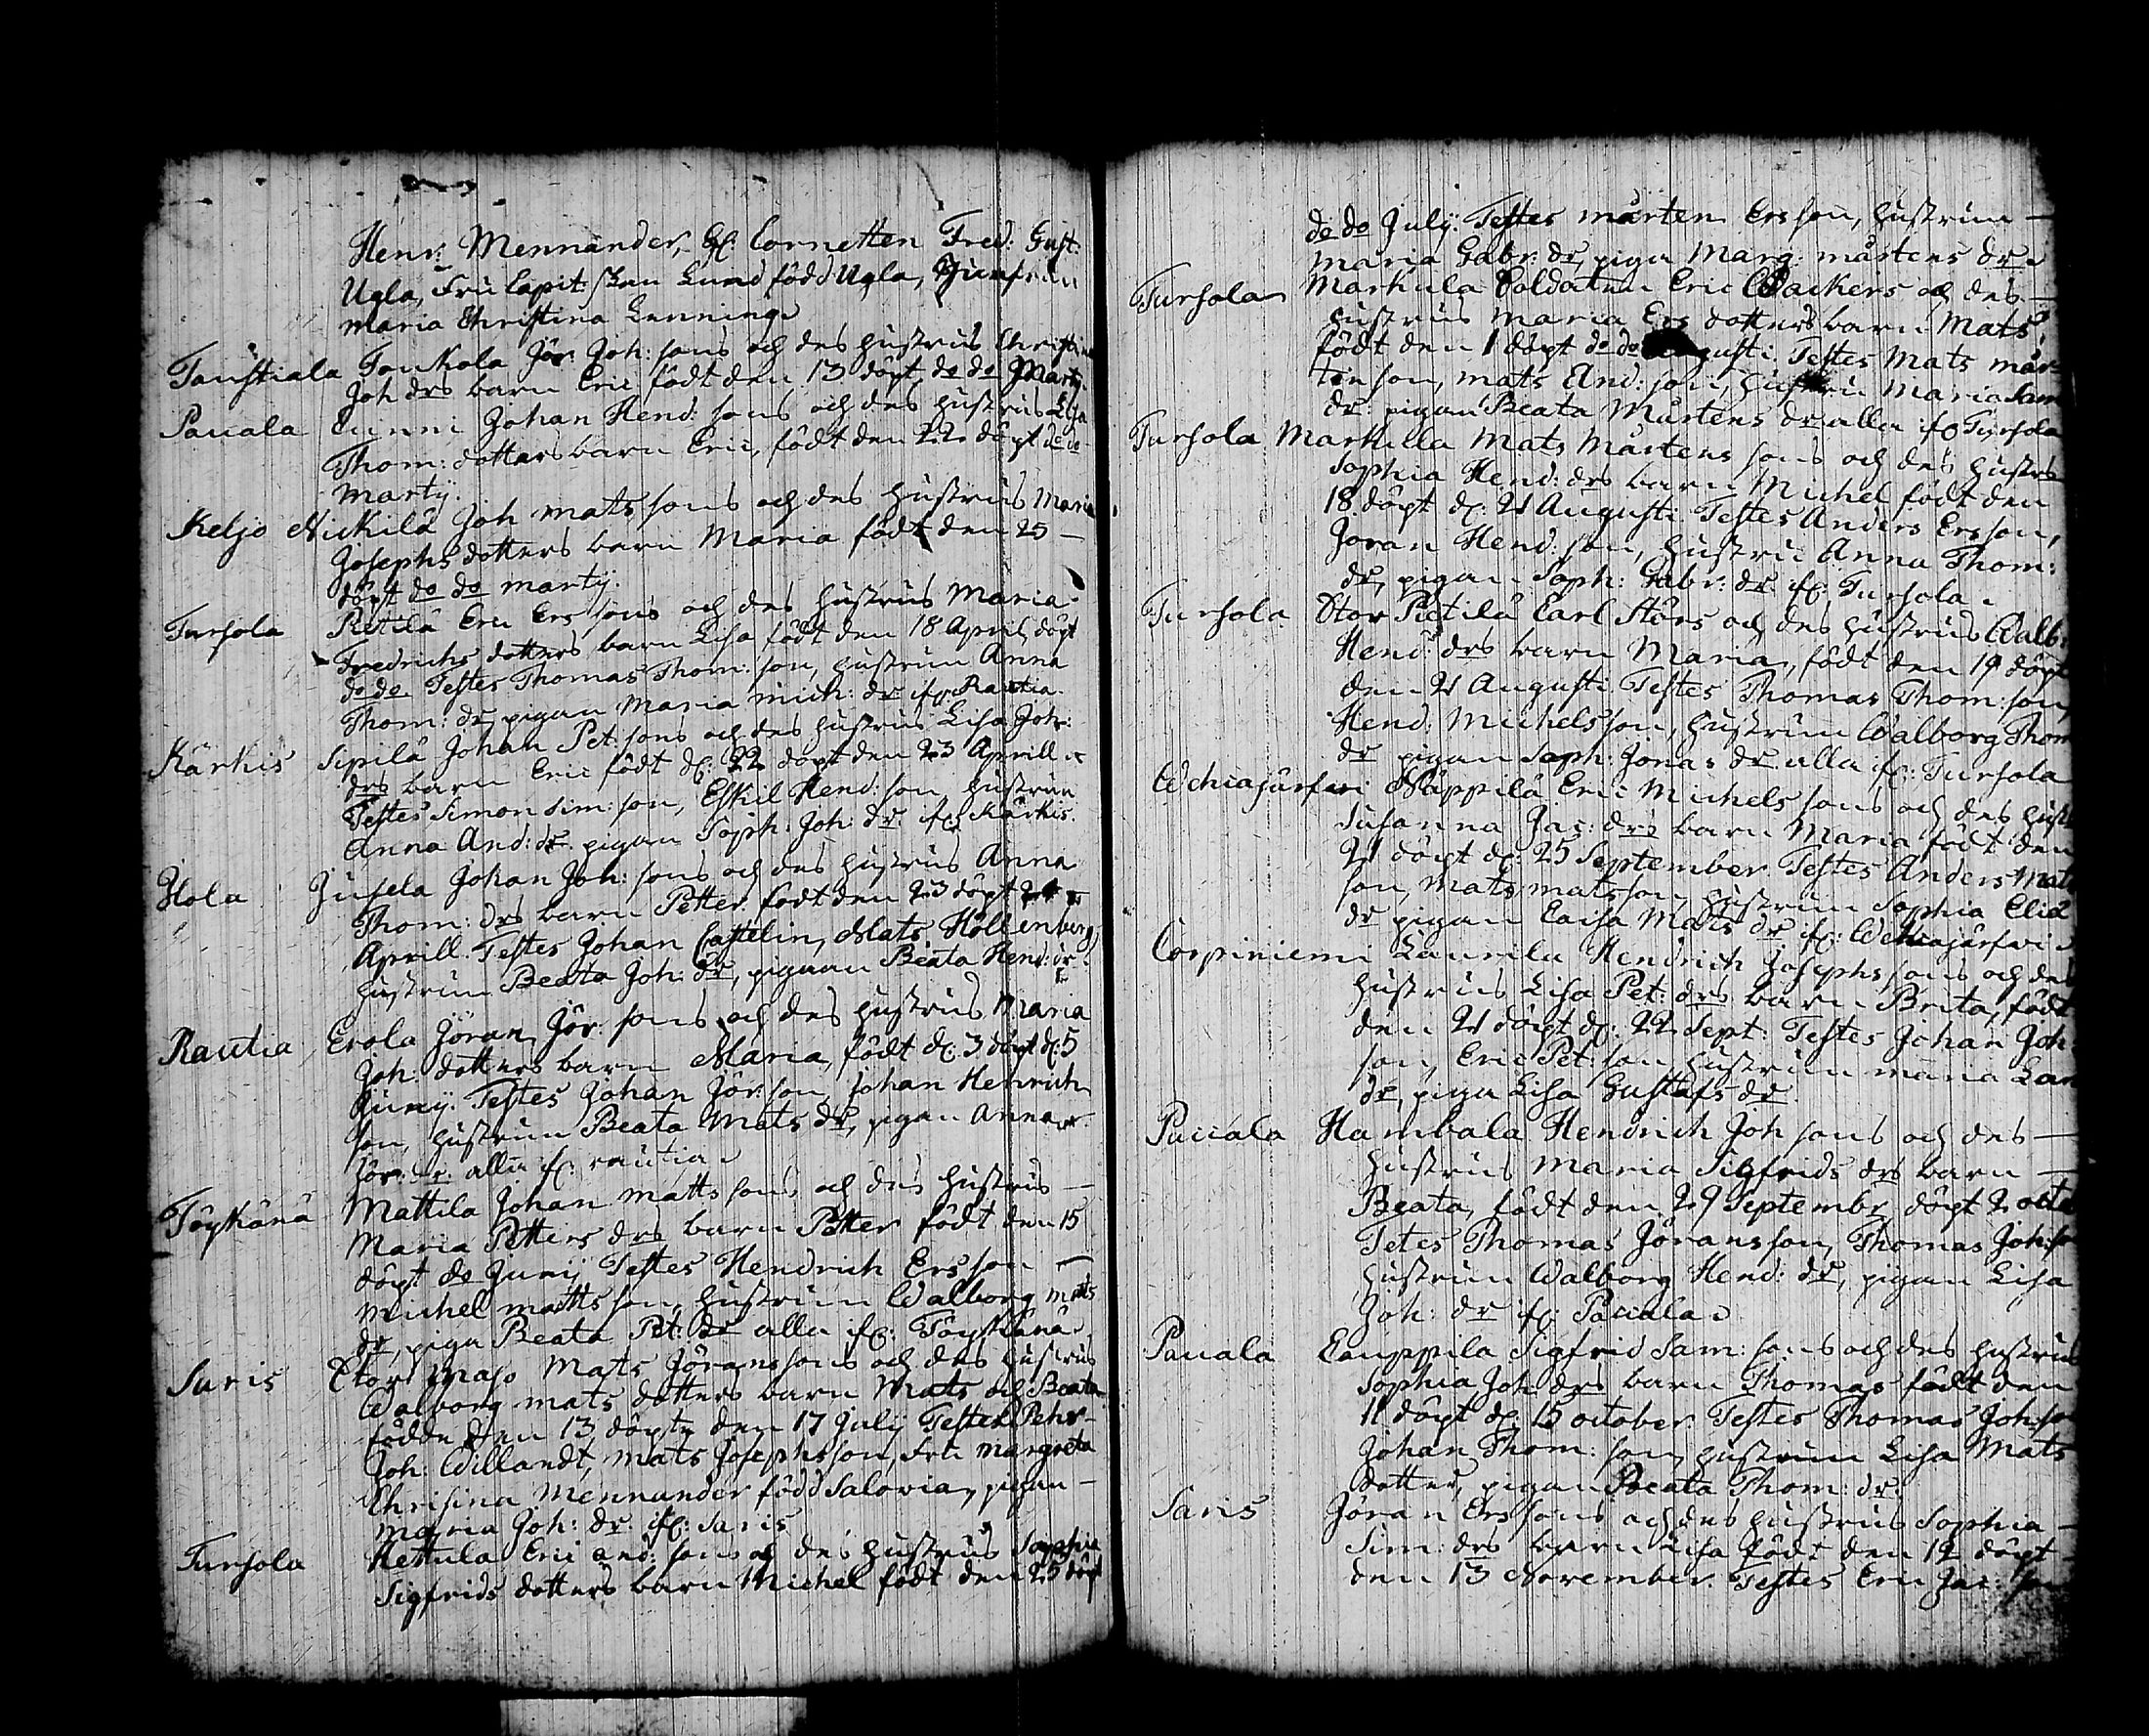 Henr: Mennander, H: Cornetten Fred: Gust:
Ugla, Fru Capit: skan Lund född Ugla, Jumfrun
Maria Christina Lenning
Taustiala Tonkola Jör: Joh: sons och des hustrus Christina
Joh drs barn Eric födt den 13 döpt do do Marty.
Pauala Cunni Johan Hend: sons och des hustrus Lisa
Thom: dotters barn Eric, födt den 22 döpt do do
Marty.
Keljo Nickilä Joh mats sons och des hustrus Maria
Josephs dotters barn Maria födt den 25 —
döpt do do marty.
Tursola Pietilä Eric Ers sons och des hustrus Maria
Fredrichs dotters barn Lisa födt den 18 April döpt
do do. Testes Thomas Thom: son, hustrun Anna
Thom: dr, pigan Maria Mich: dr if: Rautia.
Kärkis Sipilä Johan Pet: sons och des hustrus Lisa Joh:
drs barn Eric födt d: 22 döpt den 23 Aprill
Testes Simon Sim: son, Eskil Hend: son, hustrun
Anna And: dr. pigan Soph: Joh: dr. if: Kärkis.
Hola Jusela Johan Joh: sons och des hustrus Anna
Thom: drs barn Petter födt den 23 döpt 24
Aprill. Testes Johan Castelin, Mats Hollenberg,
hustrun Beata Joh: dr, pigan Beata Hend: dr.
Rautia Erola Jöran Jör: sons och des hustrus Maria
Joh: dotters barn Maria, födt d: 3 döpt d: 5
Juny. Testes Johan Jör: son, Johan Henrich
son, hustrun Beata Mats dr, pigan Anna
Jör: dr: alla if: rautia
Töykänä Mattila Johan Matts sons och des hustrus —
Maria Petters drs barn Petter födt den 15
döpt do Juny Testes Hendrich Ers son —
Michel matts son, hustrun Walborg mats
dr, piga Beata Pet: dr alla if: Töykänä
Saris Stor majo Mats Jöransons och des hustrus
Walborg mats dotters barn Mats och Beata
födde den 13 döpte den 17 July Testes Pehr
Joh: Willandt, Mats Josephsson, Fru Margreta
Chrisina Mennander född Salovia, pigan —
Maria Joh: dr: if: Saris
Tursola Kettula Eric And: sons och des hustrus Sophia
Sigfrids dotters barn Michel födt den 25 döpt
do do July. Testes mårten Ersson, hustrun —
Maria Gabr: dr, piga Marg: mårtens dr
Tursola Markula Soldaten Eric Wackers och des —
hustrus Maria Ers dotters barn Mats,
födt den 1 döpt do do Augusti. Testes Mats mår
tenson, mats And: son, hustru Maria Sam
dr: pigan Beata Mårtens dr alla if Tursola
Tursola Markilla Mats Mårtens sons och des hustrs
Sophia Hend: drs barn Michel födt den
18 döpt d: 21 Augusti Testes Anders Ersson,
Joran Hend: son, hustru Anna Thom:
dr, pigan Soph: Gabr: dr if: Tursola
Tursola Stor Pietilä Carl Stårs och des hustrus Walb:
Hend: drs barn Maria, födt den 19 döpt
den 21 Augusti Testes Thomas Thom: son,
Hend: Michelsson, hustrun Walborg Thom
dr pigan Soph: Jonas dr alla if: Tursola
Wehiajärfwi Näppilä Eric Michels sons och des hust
Susanna Jac: drs barn Maria födt den
21 döpt d: 25 September Testes Anders Mats
son, Mats mats son, hustrun Sophia Elia
dr pigan Caisa Mats dr if: Wehiajärfwi
Corpiniemi Laurila Hendrich Josephs sons och des
hustrus Lisa Pet: drs barn Brita, födt
den 21 döpt d: 22 Sept: Testes Johan Joh:
son, Eric Pet: son hustrun maria Lar
dr, piga Lisa Gustafs dr
Pauala Hambala Hendrich Joh sons och des —
hustrus Maria Sigfrids drs barn —
Beata, födt den 29 Septembr döpt 2 octo
Tetes Thomas Jöransson, Thomas Joh: son
hustrun Walborg Hend: dr, pigan Lisa
Joh: dr if: Pauala
Pauala Cauppila Sigfrid Sam: sons och des hustrus
Sophia Joh: drs barn Thomas födt den
11 döpt d: 15 october. Testes Thomas Joh: son
Johan Thom: son, hustrun Lisa Mats
dotter, pigan Beata Thom: dr:
Saris Jöran Ers sons och des hustrus Sophia —
Sim: drs barn Lisa födt den 12 döpt —
den 13 November. Testes Eric Jac: son